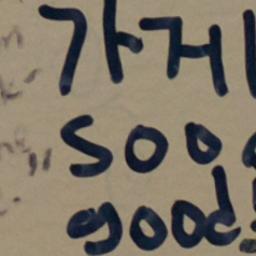 가게
sooo
good!